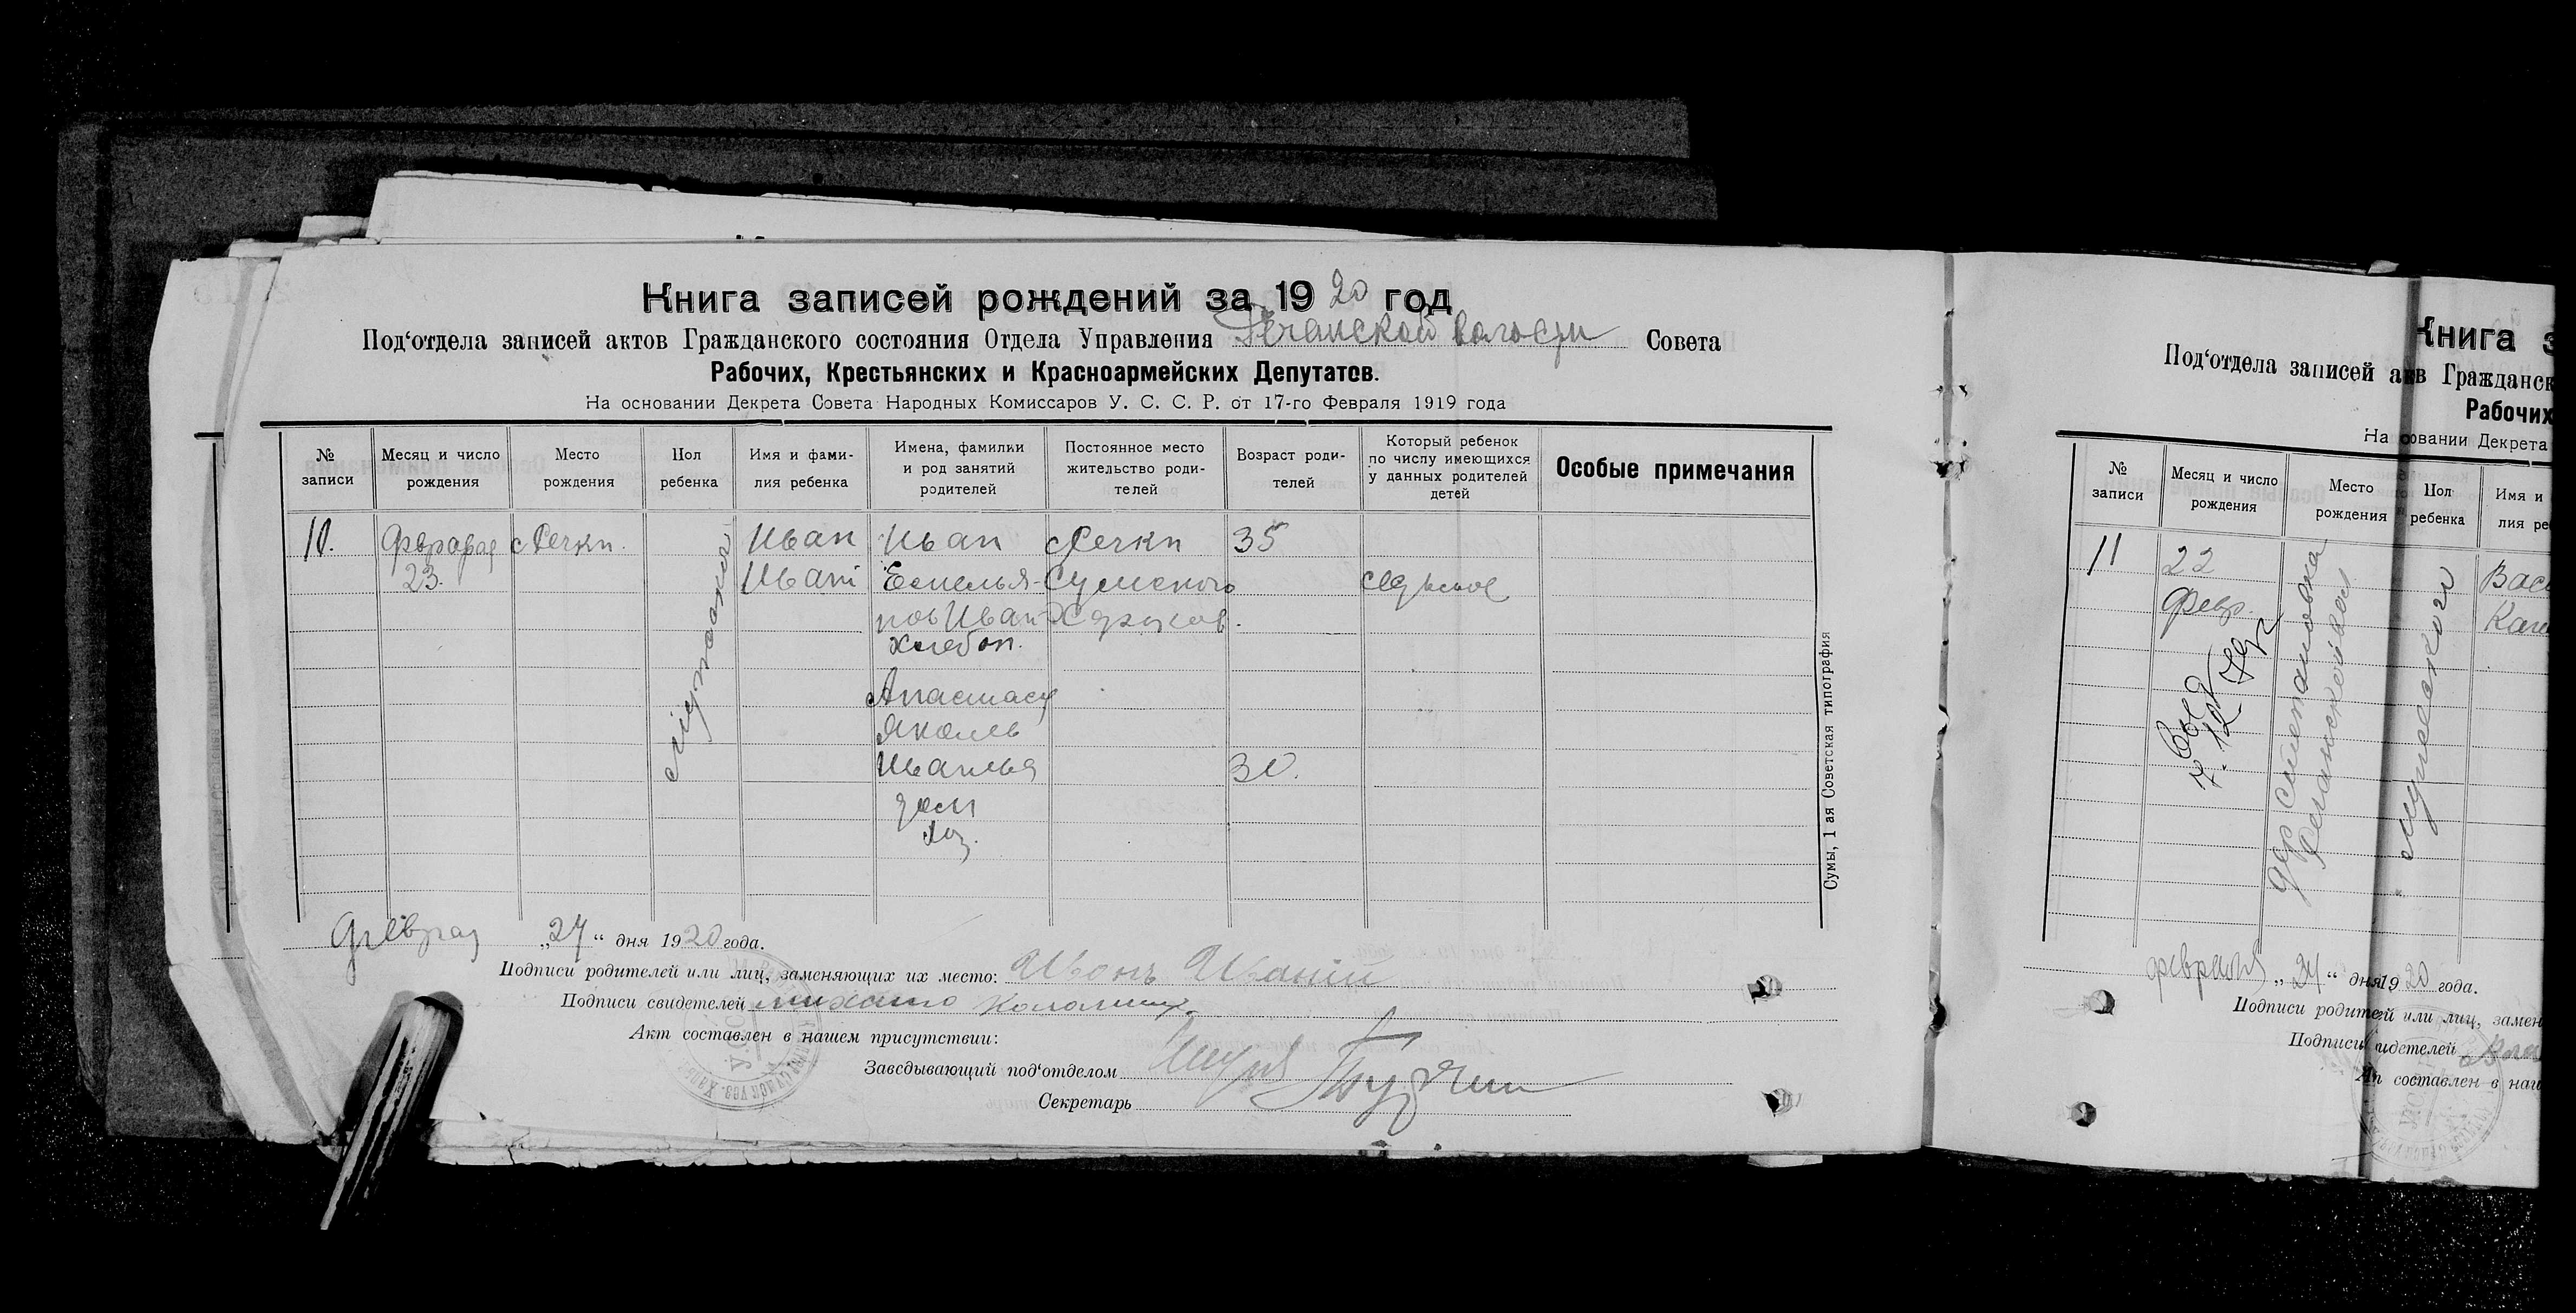 Книга записей рождений за 1920 год
Под‘отдела записей актов Гражданского состояния Отдела Управления Речанской волости Совета
Рабочих, Крестьянских и Красноармейских Депутатов.
На основании Декрета Совета Народных Комиссаров У. С. С. Р. от 17-го Февраля 1919 года
№ записи
Месяц и число рождения
Место рождения
Пол ребенка
Имя и фами-
лия ребенка
Имена, фамилии
и род занятий
родителей
Постоянное место
жительство роди-
телей
Возраст роди-
телей
Который ребенок
по числу имеющихся
у данных родителей
детей
Особые примечания
10.
Февраля
23.
с Речки
Мужской
Иван
Ивані
Иван
Емелья-
нов Иван
хлебоп.
Анастас
Яковль
дом
хоз.
с Речки
Сумского
Харьков.
35
30.
седьмое
Сумы, 1 ая Советская типография
Феврал „24“ дня 1920 года.
Подписи родителей или лиц, заменяющих их место: Иванъ Иваній
Подписи свидетелей
Акт составлен в нашем присутствии:
Заведывающий под‘отделом
Секретарь
Книга з
Под‘отдела записей ак в Гражданск
Рабочих
На овании Декрета
№ записи
Месяц и число
рождения
Место
рождения
Пол
ребенка
Имя и
лия ре
11
22
Февр.
дер Степановка
Речанской вол
Мужского
Вас
февраля „24“ дня 1920 года.
Подписи родите й или лиц, замен
Подписи идетелей
Ак составлен в наш